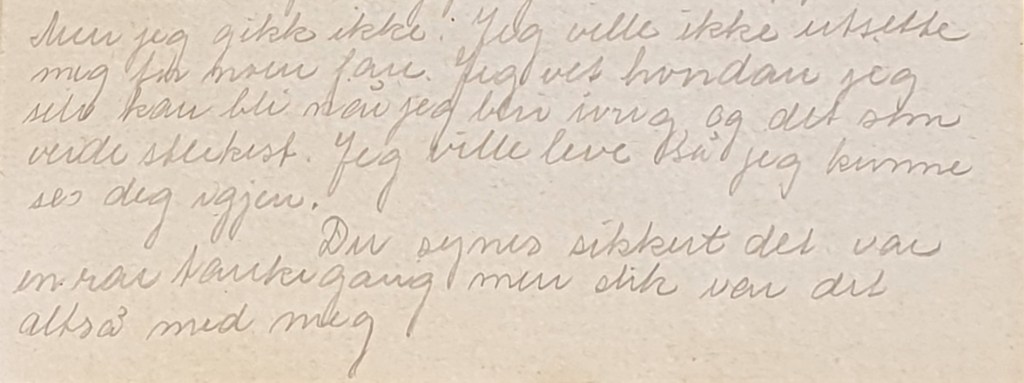 Men jeg gikk ikke. Jeg ville ikke utsette
meg for noen fare. Jeg vet hvordan jeg
selv kan bli når jeg blir ivrig og det som
verre sterkest. Jeg ville leve så jeg kunne
se deg igjen.
Du synes sikkert det var
en rar tankegang men slik var det
altså med meg